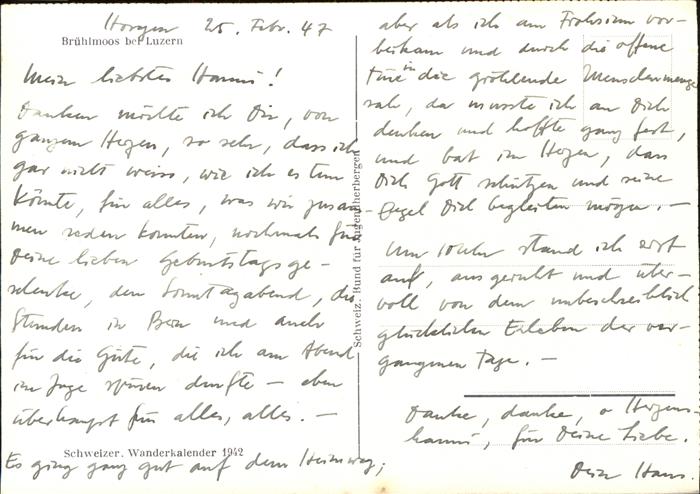 Horgen 25. Febr. 47
Brühlmoos bei Luzern
Mein liebstes Hanni!
Danken möchte ich Dir, von
ganzem Herzen, so sehr, dass ich
gar nicht weiss, wie ich es tun
könnte, für alles, was wir zusam-
men reden konnten, nochmals für
Deine lieben Geburtstagsge-
schenke, den Sonntagabend, die
Stunden in Bern und auch
für die Güte, die ich am Abend
im Zuge spüren durfte — eben
überhaupt für alles, alles. —
Schweizer. Wanderkalender 1942
Es ging ganz gut auf dem Heimweg;
Schweiz. Bund für Jugendherbergen
aber als ich am Frohsinn vor-
beikam und durch die offene
Türe in die gröhlende Menschenmenge
sah, da musste ich an Dich
denken und hoffte ganz fest,
und bat im Herzen, dass
Dich Gott schützen und seine
Engel Dich begleiten mögen. —
Um 10 Uhr stand ich erst
auf, ausgeruht und über-
voll von dem unbeschreiblich
glücklichen Erleben der ver-
gangenen Tage. —
Danke, danke, o Herzens-
hanni, für Deine Liebe.
Dein Hans.